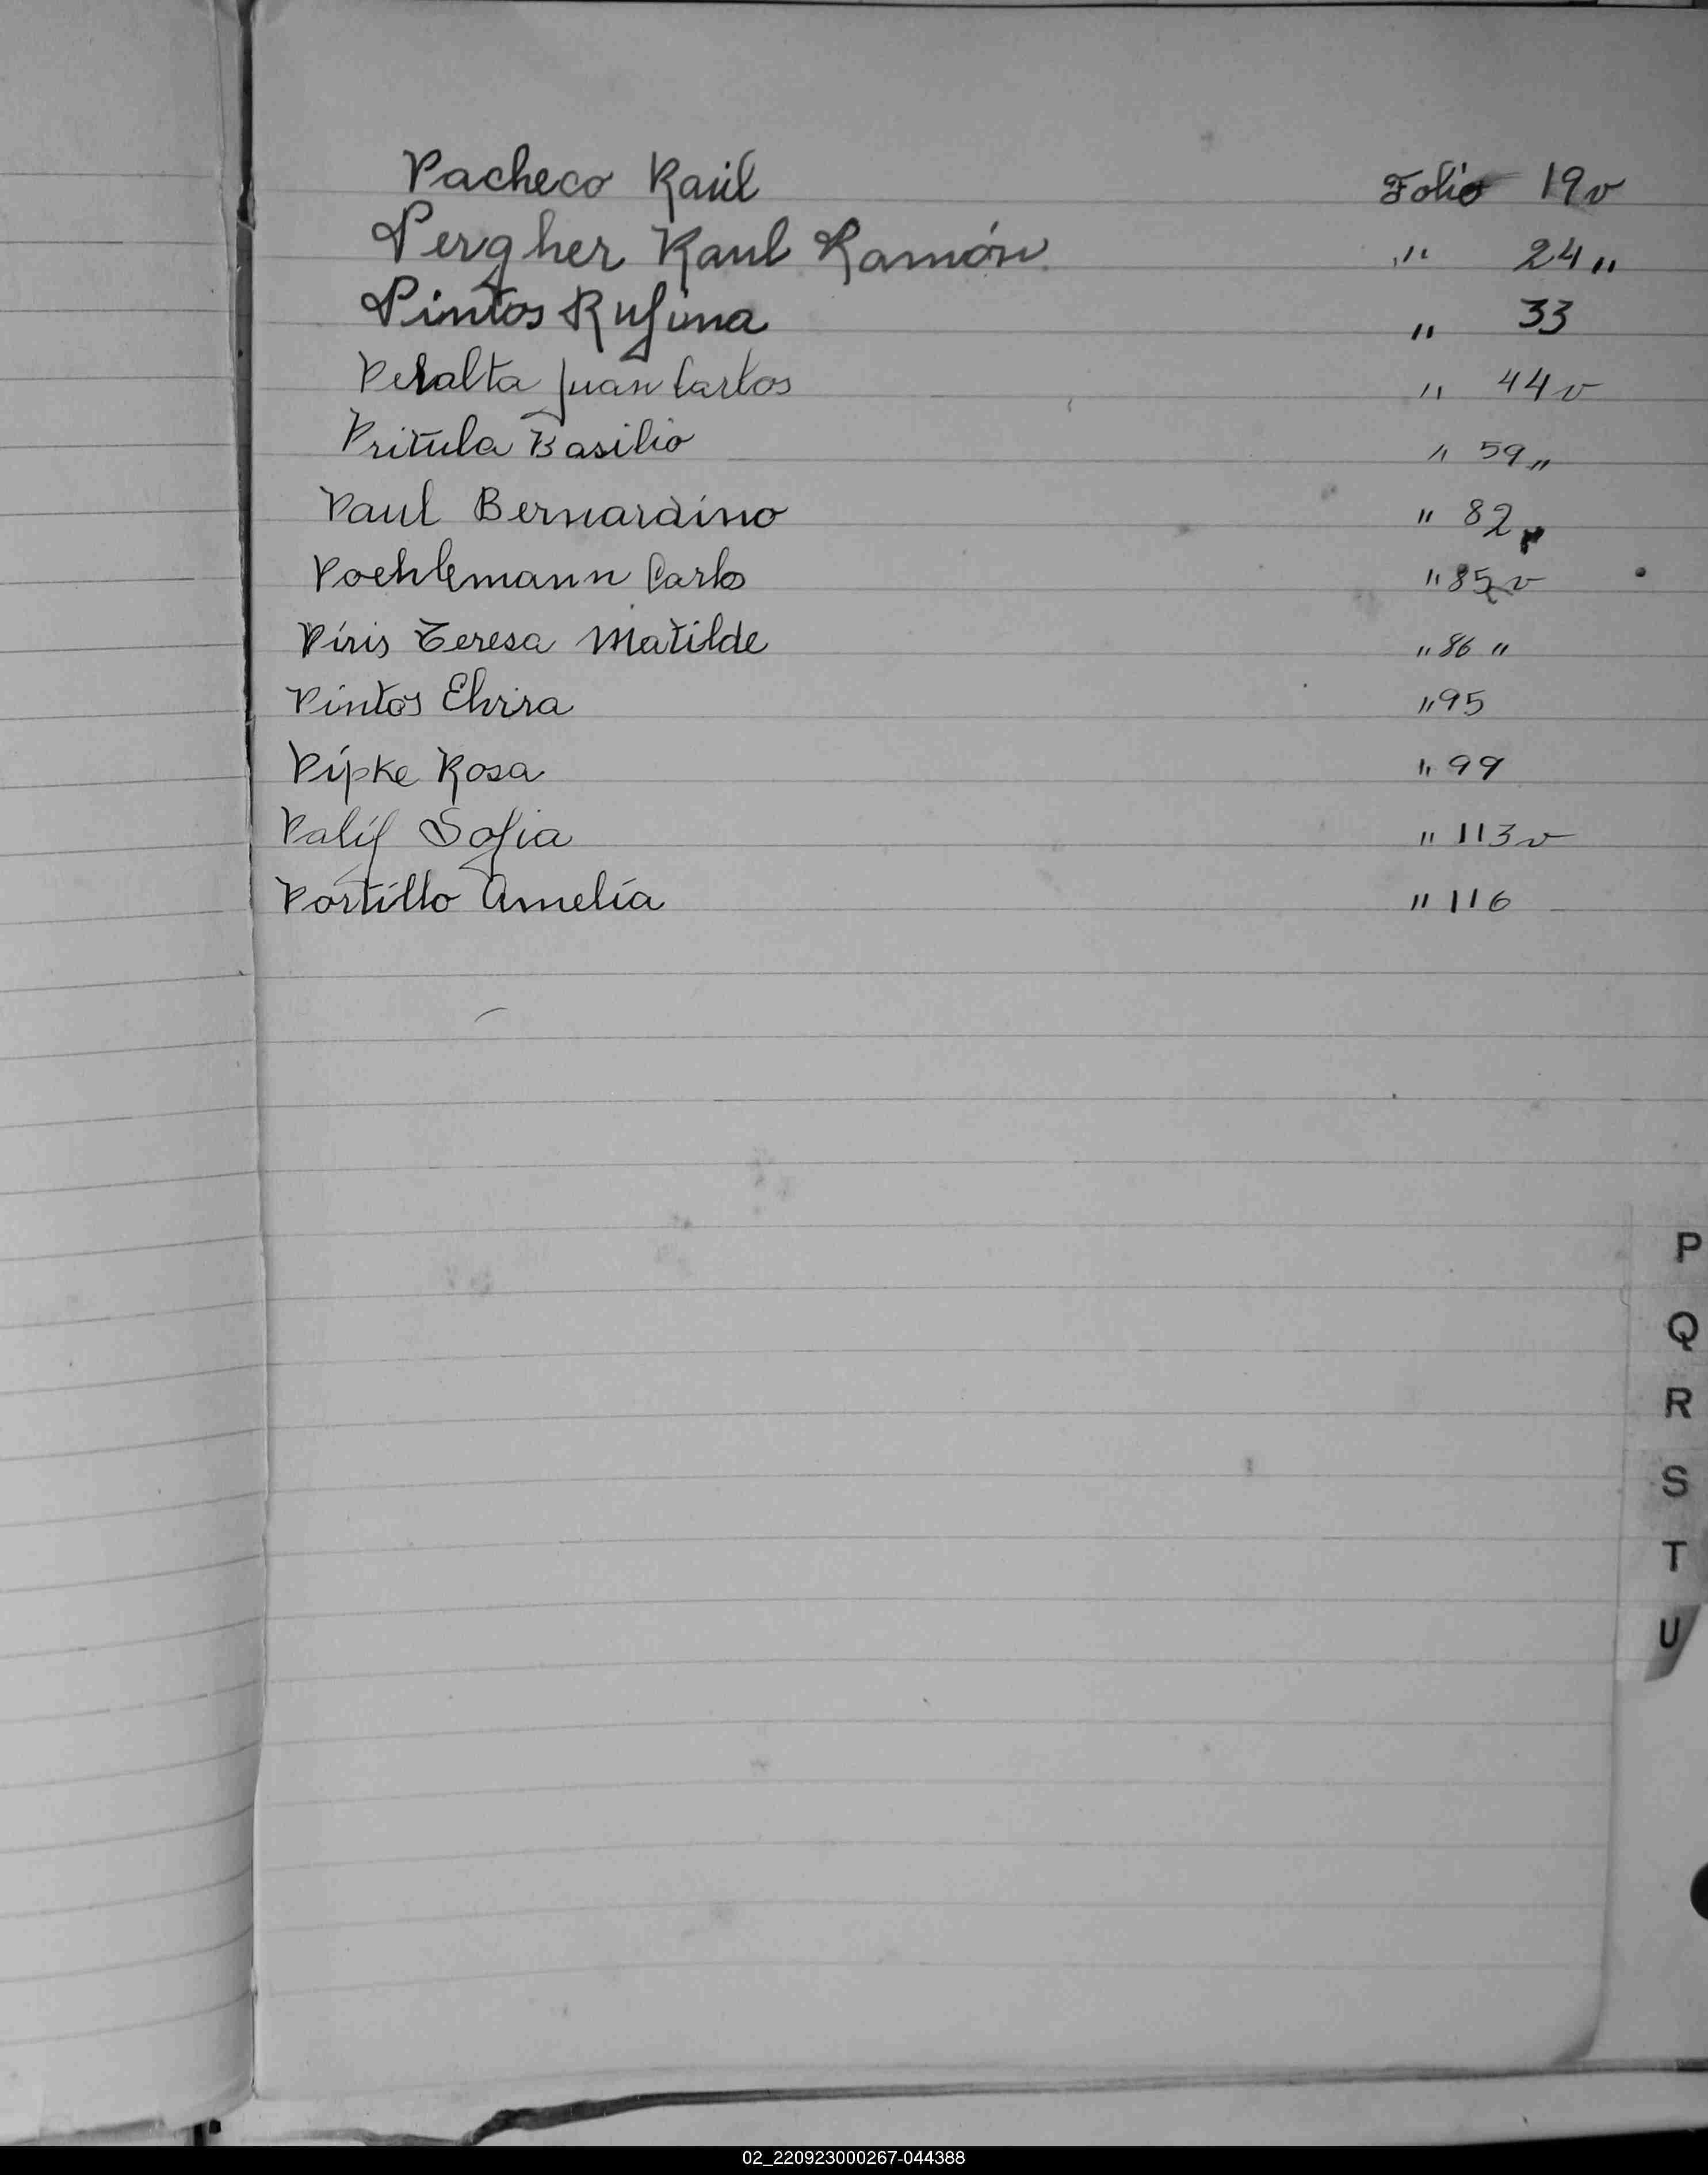 Pacheco Raúl Folio 19v
Pergher Raul Ramón " 24 "
Pintos Rufina " 33
Peralta Juan Carlos " 44 v
Pritula Basilio " 59 "
Paul Bernardino " 82 "
Poehlemann Carlos " 85 v
Piris Teresa Matilde " 86 "
Pintos Elvira " 95
Pipke Rosa " 99
Palif Sofia " 113 v
Portillo Amelia " 116
P
Q
R
S
T
U
02_220923000267-044388